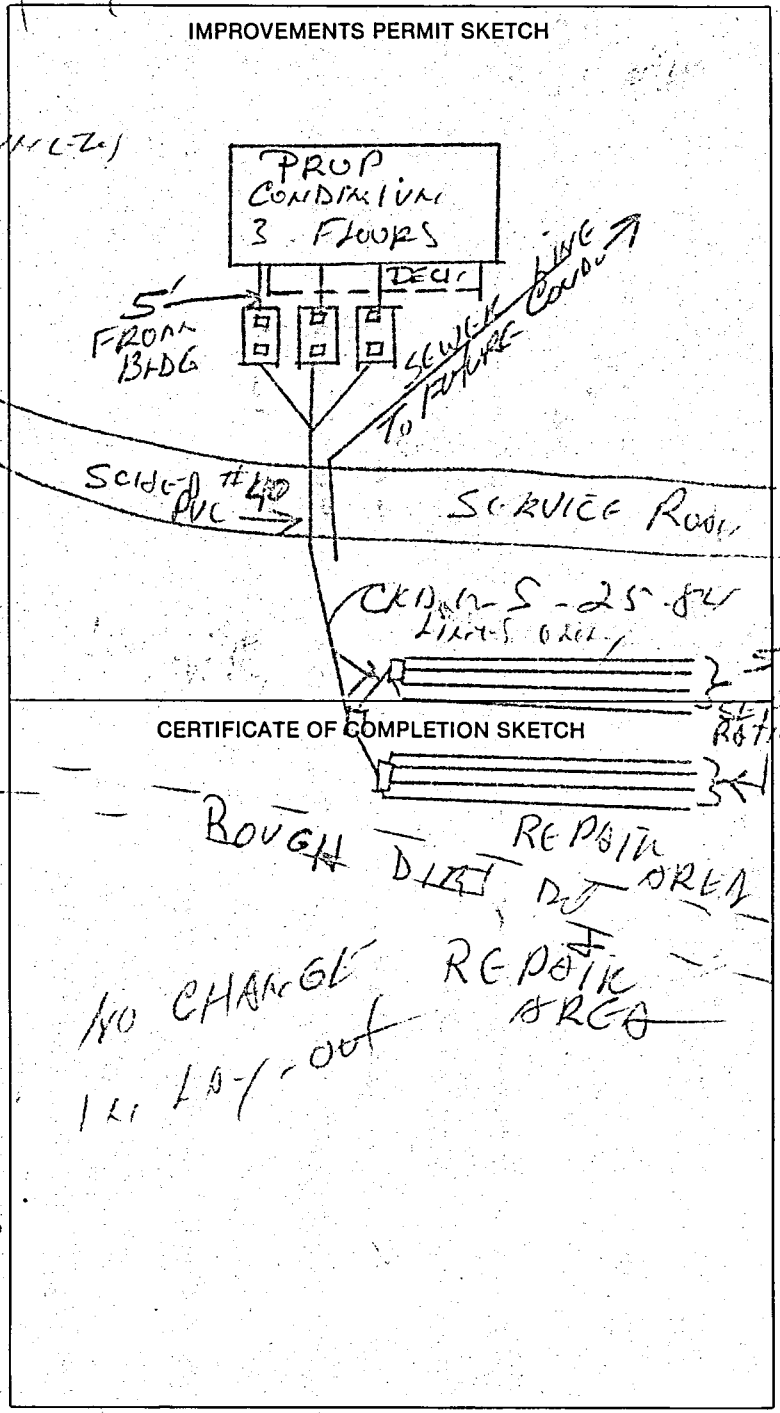 IMPROVEMENTS PERMIT SKETCH
PROP
CONDIMIUM
3 FLOORS
DECK
5'
FROM
BLDG
SEWER LINE
TO FUTURE CONDO
SCHED #40
PVC
SERVICE ROAD
CKD 5-25-84
LINES ONLY
CERTIFICATE OF COMPLETION SKETCH
ROUGH DIRT RD
REPAIR
AREA
REPAIR
AREA
NO CHANGE
IN LAY-OUT